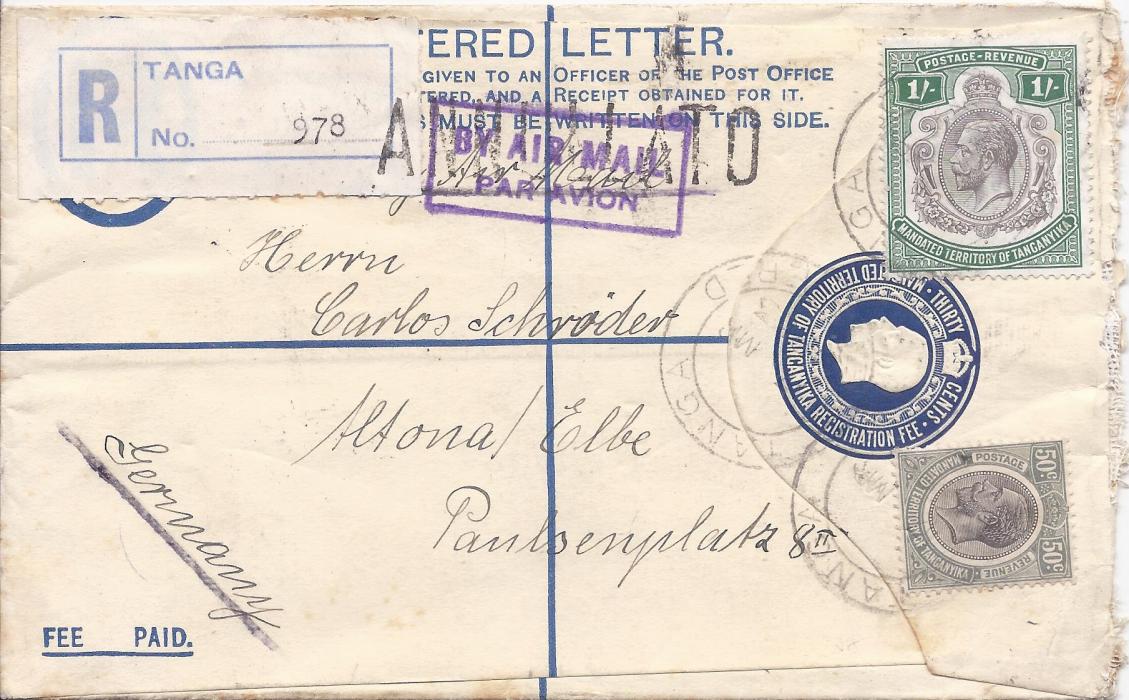 TERED LETTER.
GIVEN TO AN OFFICER OF THE POST OFFICE
TERED, AND A RECEIPT OBTAINED FOR IT.
S MUST BE WRITTEN ON THIS SIDE.
R TANGA
No. 978
ANNULLATO
BY AIR MAIL
PAR AVION
Air Mail
POSTAGE-REVENUE
1/- 1/-
MANDATED TERRITORY OF TANGANYIKA
Herrn
Carlos Schröder
Altona/Elbe
Paulsenplatz 8 II
Germany
FEE PAID.
THIRTY CENTS · MANDATED TERRITORY OF TANGANYIKA REGISTRATION FEE ·
TANGA
TANGA
TANGA
POSTAGE
50c 50c
MANDATED TERRITORY OF TANGANYIKA
REVENUE